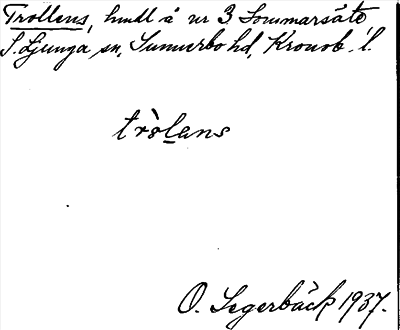 Trollens, hmdl å nr 3 Sommarsäte
S. Ljunga sn, Sunnerbo hd, Kronob. l.
tròlans
O. Segerbäck 1937.